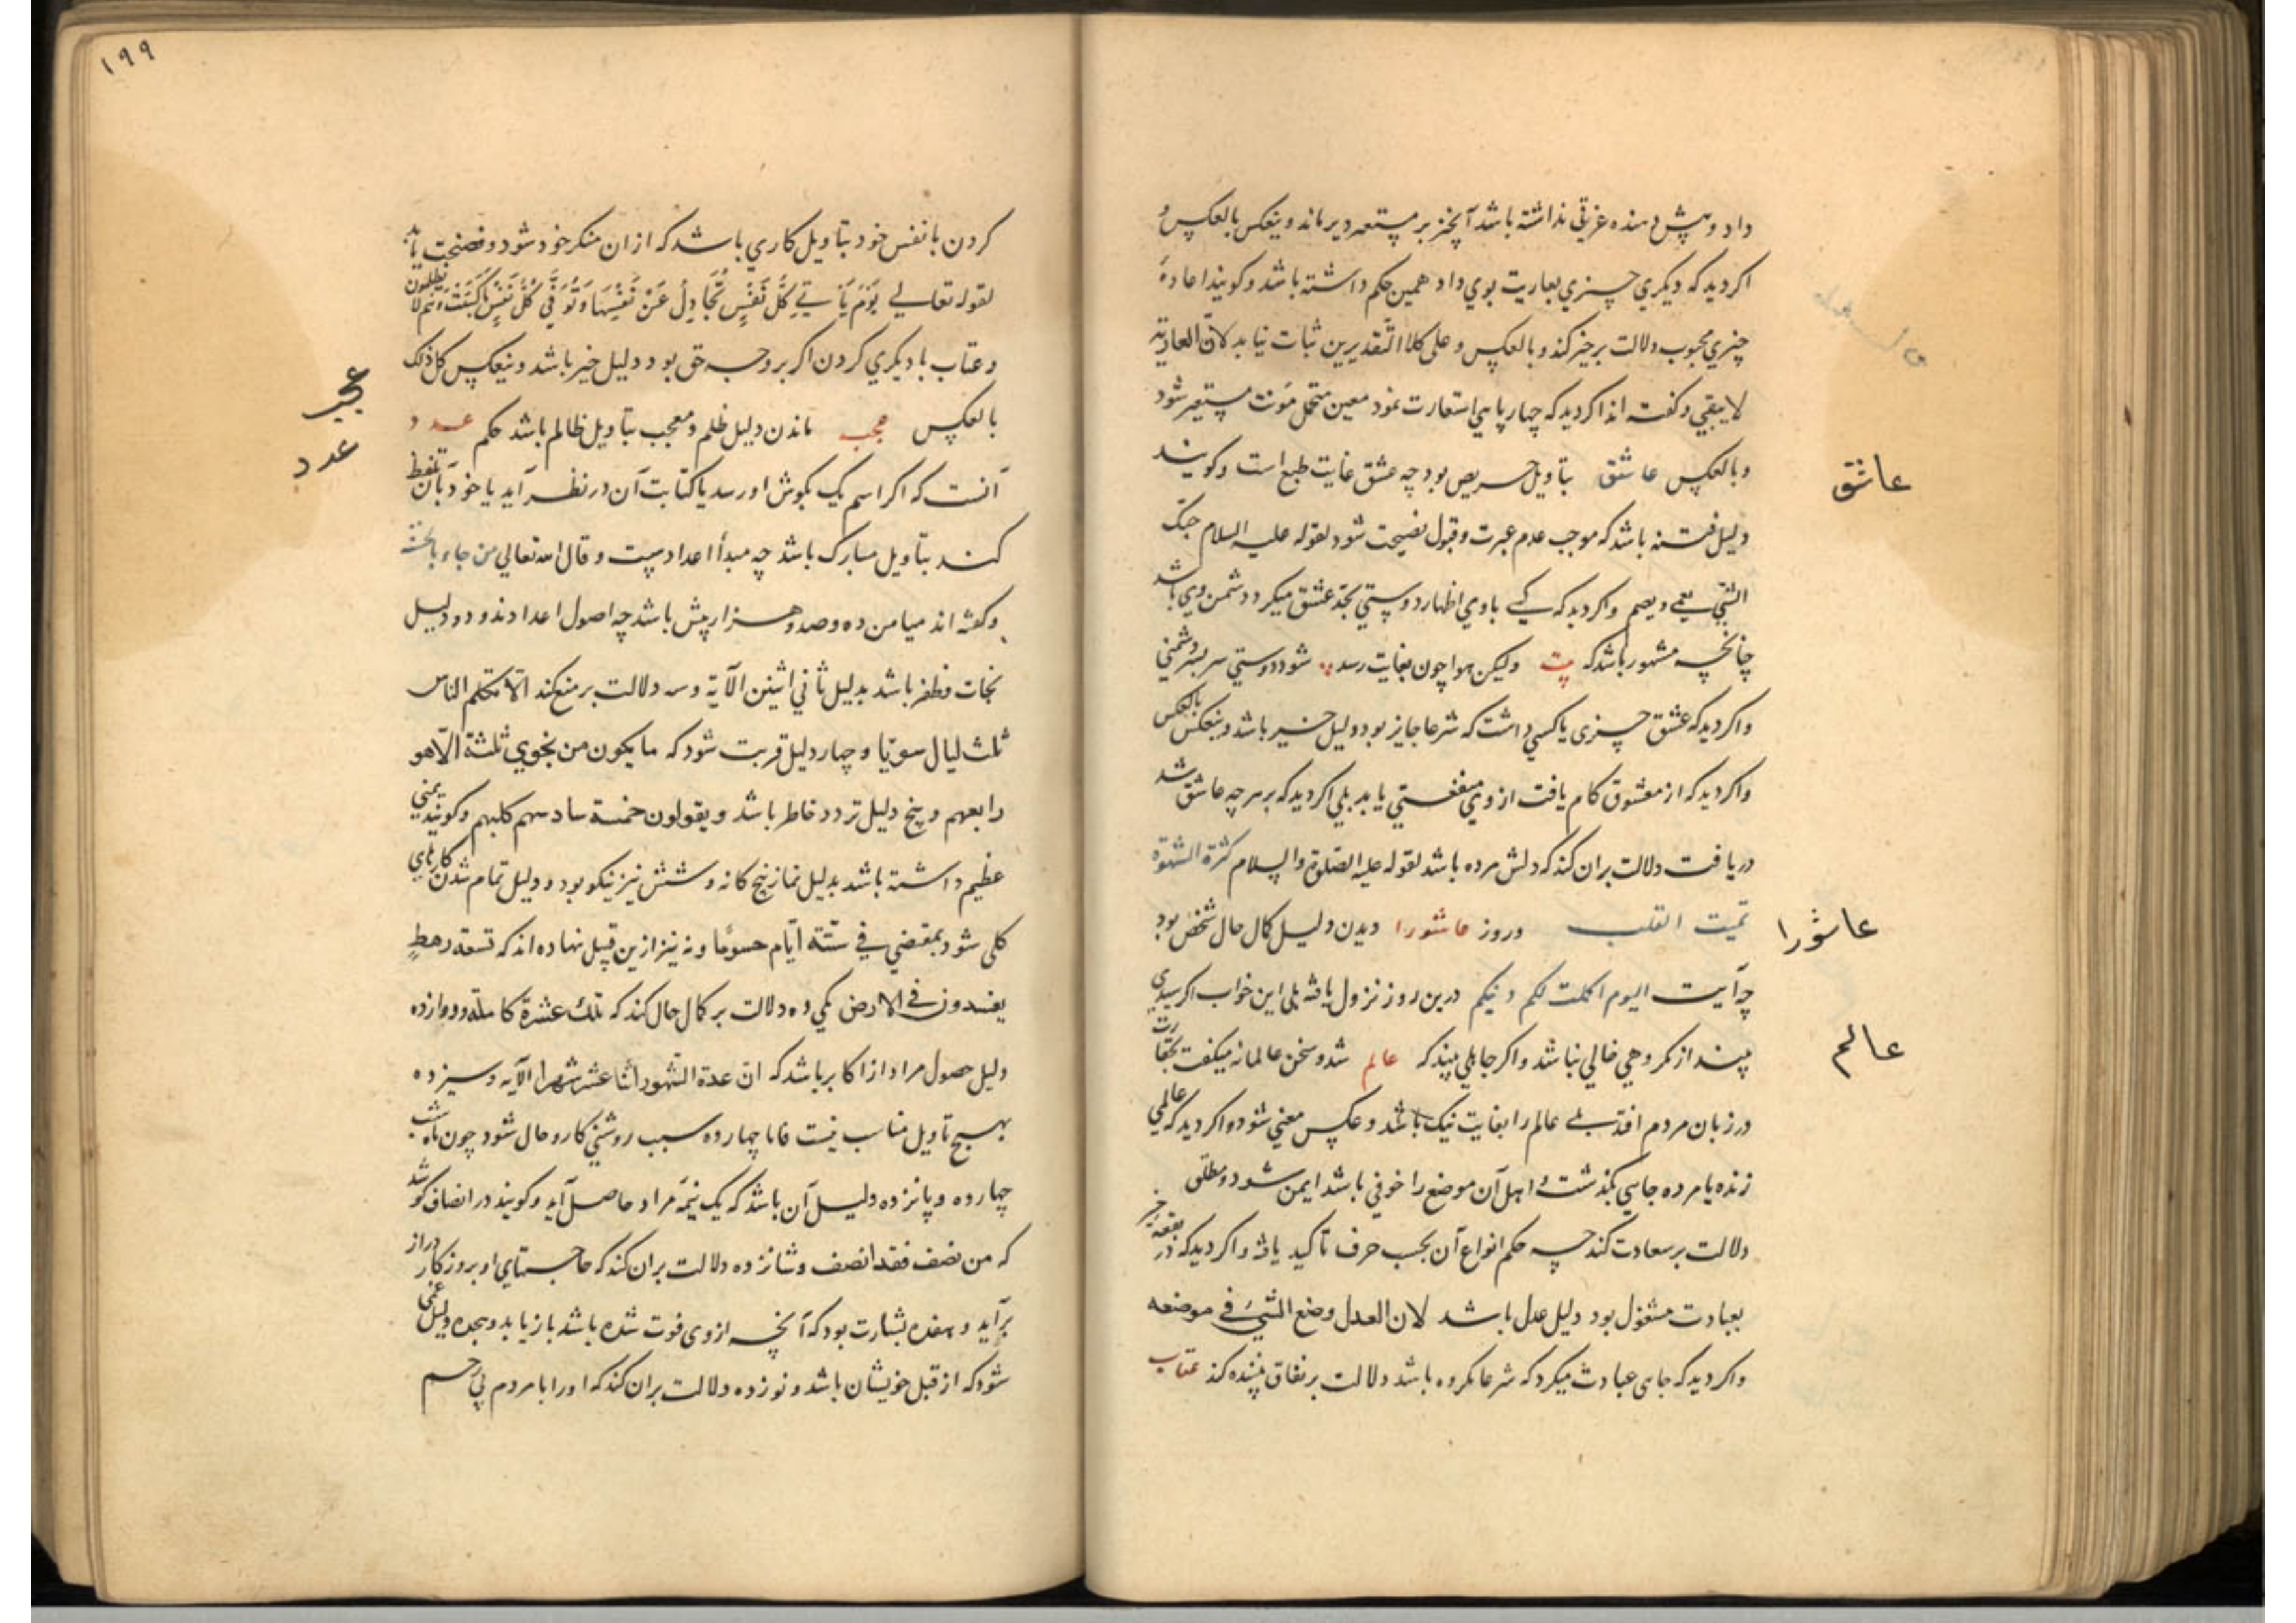 داد و پیش دهنده عزیتی نداشته باشد آنچیز بر مستعیر دیر ماند و ینعکس بالعکس و
اکر دید که دیکری چیزی بعاریت بوی داد همین حکم داشته باشد و کویند اعادهٔ
چیزی محبوب دلالت بر خیر کند و بالعکس و علی کلا التقدیرین ثبات نیابد لان العاریة
لا یبقی و کفته اند اکر دید که چهارپایی استعارت نمود معین متحمل مونت مستعیر شود
عاشق
و بالعکس عاشق بتاویل حریص بود چه عشق غایت طبع است و کویند
دلیل فتنه باشد که موجب عدم عبرت و قبول نصیحت شود لقوله علیه السلام حبک
الشئ یعمی و یصم و اکر دید که کسی با وی اظهار دوستی بحد عشق میکرد دشمن وی باشد
چنانچه مشهور باشد که بیت ولیکن هوا چون بغایت رسد شود دوستی سر بسر دشمنی
و اکر دید که عشق چیزی یا کسی داشت که شرعا جایز بود دلیل خیر باشد و ینعکس بالعکس
و اکر دید که از معشوق کام یافت از وی منفعتی یابد بلی اکر دید که بر هر چه عاشق شد
دریافت دلالت بران کند که دلش مرده باشد لقوله علیه الصلوة والسلام کثرة الشهوة
عاشورا
تمیت القلب و روز عاشورا دیدن دلیل کمال حال شخص بود
چه آیت الیوم اکملت لکم دینکم درین روز نزول یافته بلی این خواب اکر سیدی
عالم
بیند از مکروهی خالی نباشد و اکر جاهلی بیند که عالم شد و سخن عالمانه میکفت بحقارت
در زبان مردم افتد بلی عالم را بغایت نیک باشد و عکس معنی شود و اکر دید که عالمی
زنده یا مرده جایی بکذشت و اهل آن موضع را خوفی باشد ایمن شود و مطلق
دلالت بر سعادت کند چه حکم انواع آن بحسب حرف تاکید یافته و اکر دید که در بقعهٔ خیر
بعبادت مشغول بود دلیل عدل باشد لان العدل وضع الشئ فی موضعه
و اکر دید که جایی عبادت میکرد که شرعا مکروه باشد دلالت بر نفاق بیننده کند عتاب
۱۹۹
کردن با نفس خود بتاویل کاری باشد که از ان منکر خود شود و فضیحت یابد
لقوله تعالی یوم یاتی کل نفس تجادل عن نفسها و توفی کل نفس ما کسبت و هم لا یظلمون
و عتاب با دیکری کردن اکر بر وجه حق بود دلیل خیر باشد و ینعکس کل ذلک
عجب
بالعکس عجب ماندن دلیل ظلم و معجب بتاویل ظالم باشد حکم عدد
عدد
آنست که اکر اسم یک بکوش او رسد یا کتابت آن در نظر آید یا خود بآن تلفظ
کند بتاویل مبارک باشد چه مبدأ اعدادست و قال الله تعالی من جاء بالحسنة
و کفته اند میامن ده و صد و هزار بیش باشد چه اصول اعدادند و دو دلیل
نجات و ظفر باشد بدلیل ثانی اثنین الآیة و سه دلالت بر منع کند الا تکلم الناس
ثلث لیال سویا و چهار دلیل قربت شود که ما یکون من نجوی ثلثة الا هو
رابعهم و پنج دلیل تردد خاطر باشد و یقولون خمسة سادسهم کلبهم و کویند یمنی
عظیم داشته باشد بدلیل نماز پنج کانه و شش نیز نیکو بود و دلیل تمام شدن کارهای
کلی شود بمقتضی فی ستة ایام حسوما و نه نیز ازین قبیل نهاده اند که تسعة رهط
یفسدون فی الارض بکی ده دلالت بر کمال حال کند که تلک عشرة کاملة و دوازده
دلیل حصول مراد از اکابر باشد که ان عدة الشهور اثنا عشر شهرا الآیه و سیزده
بهیچ تاویل مناسب نیست فاما چهارده سبب روشنی کار و حال شود چون ماه شب
چهارده و پانزده دلیل آن باشد که یک نیمه مراد حاصل آید و کویند در انصاف کوشد
که من نصف فقد انصف و شانزده دلالت بران کند که حاجتهای او بروزکار دراز
برآید و هفده بشارت بود که آنچه از وی فوت شده باشد باز یابد و هجده دلیل غمی
شود که از قبل خویشان باشد و نوزده دلالت بران کند که او را با مردم بی رحم